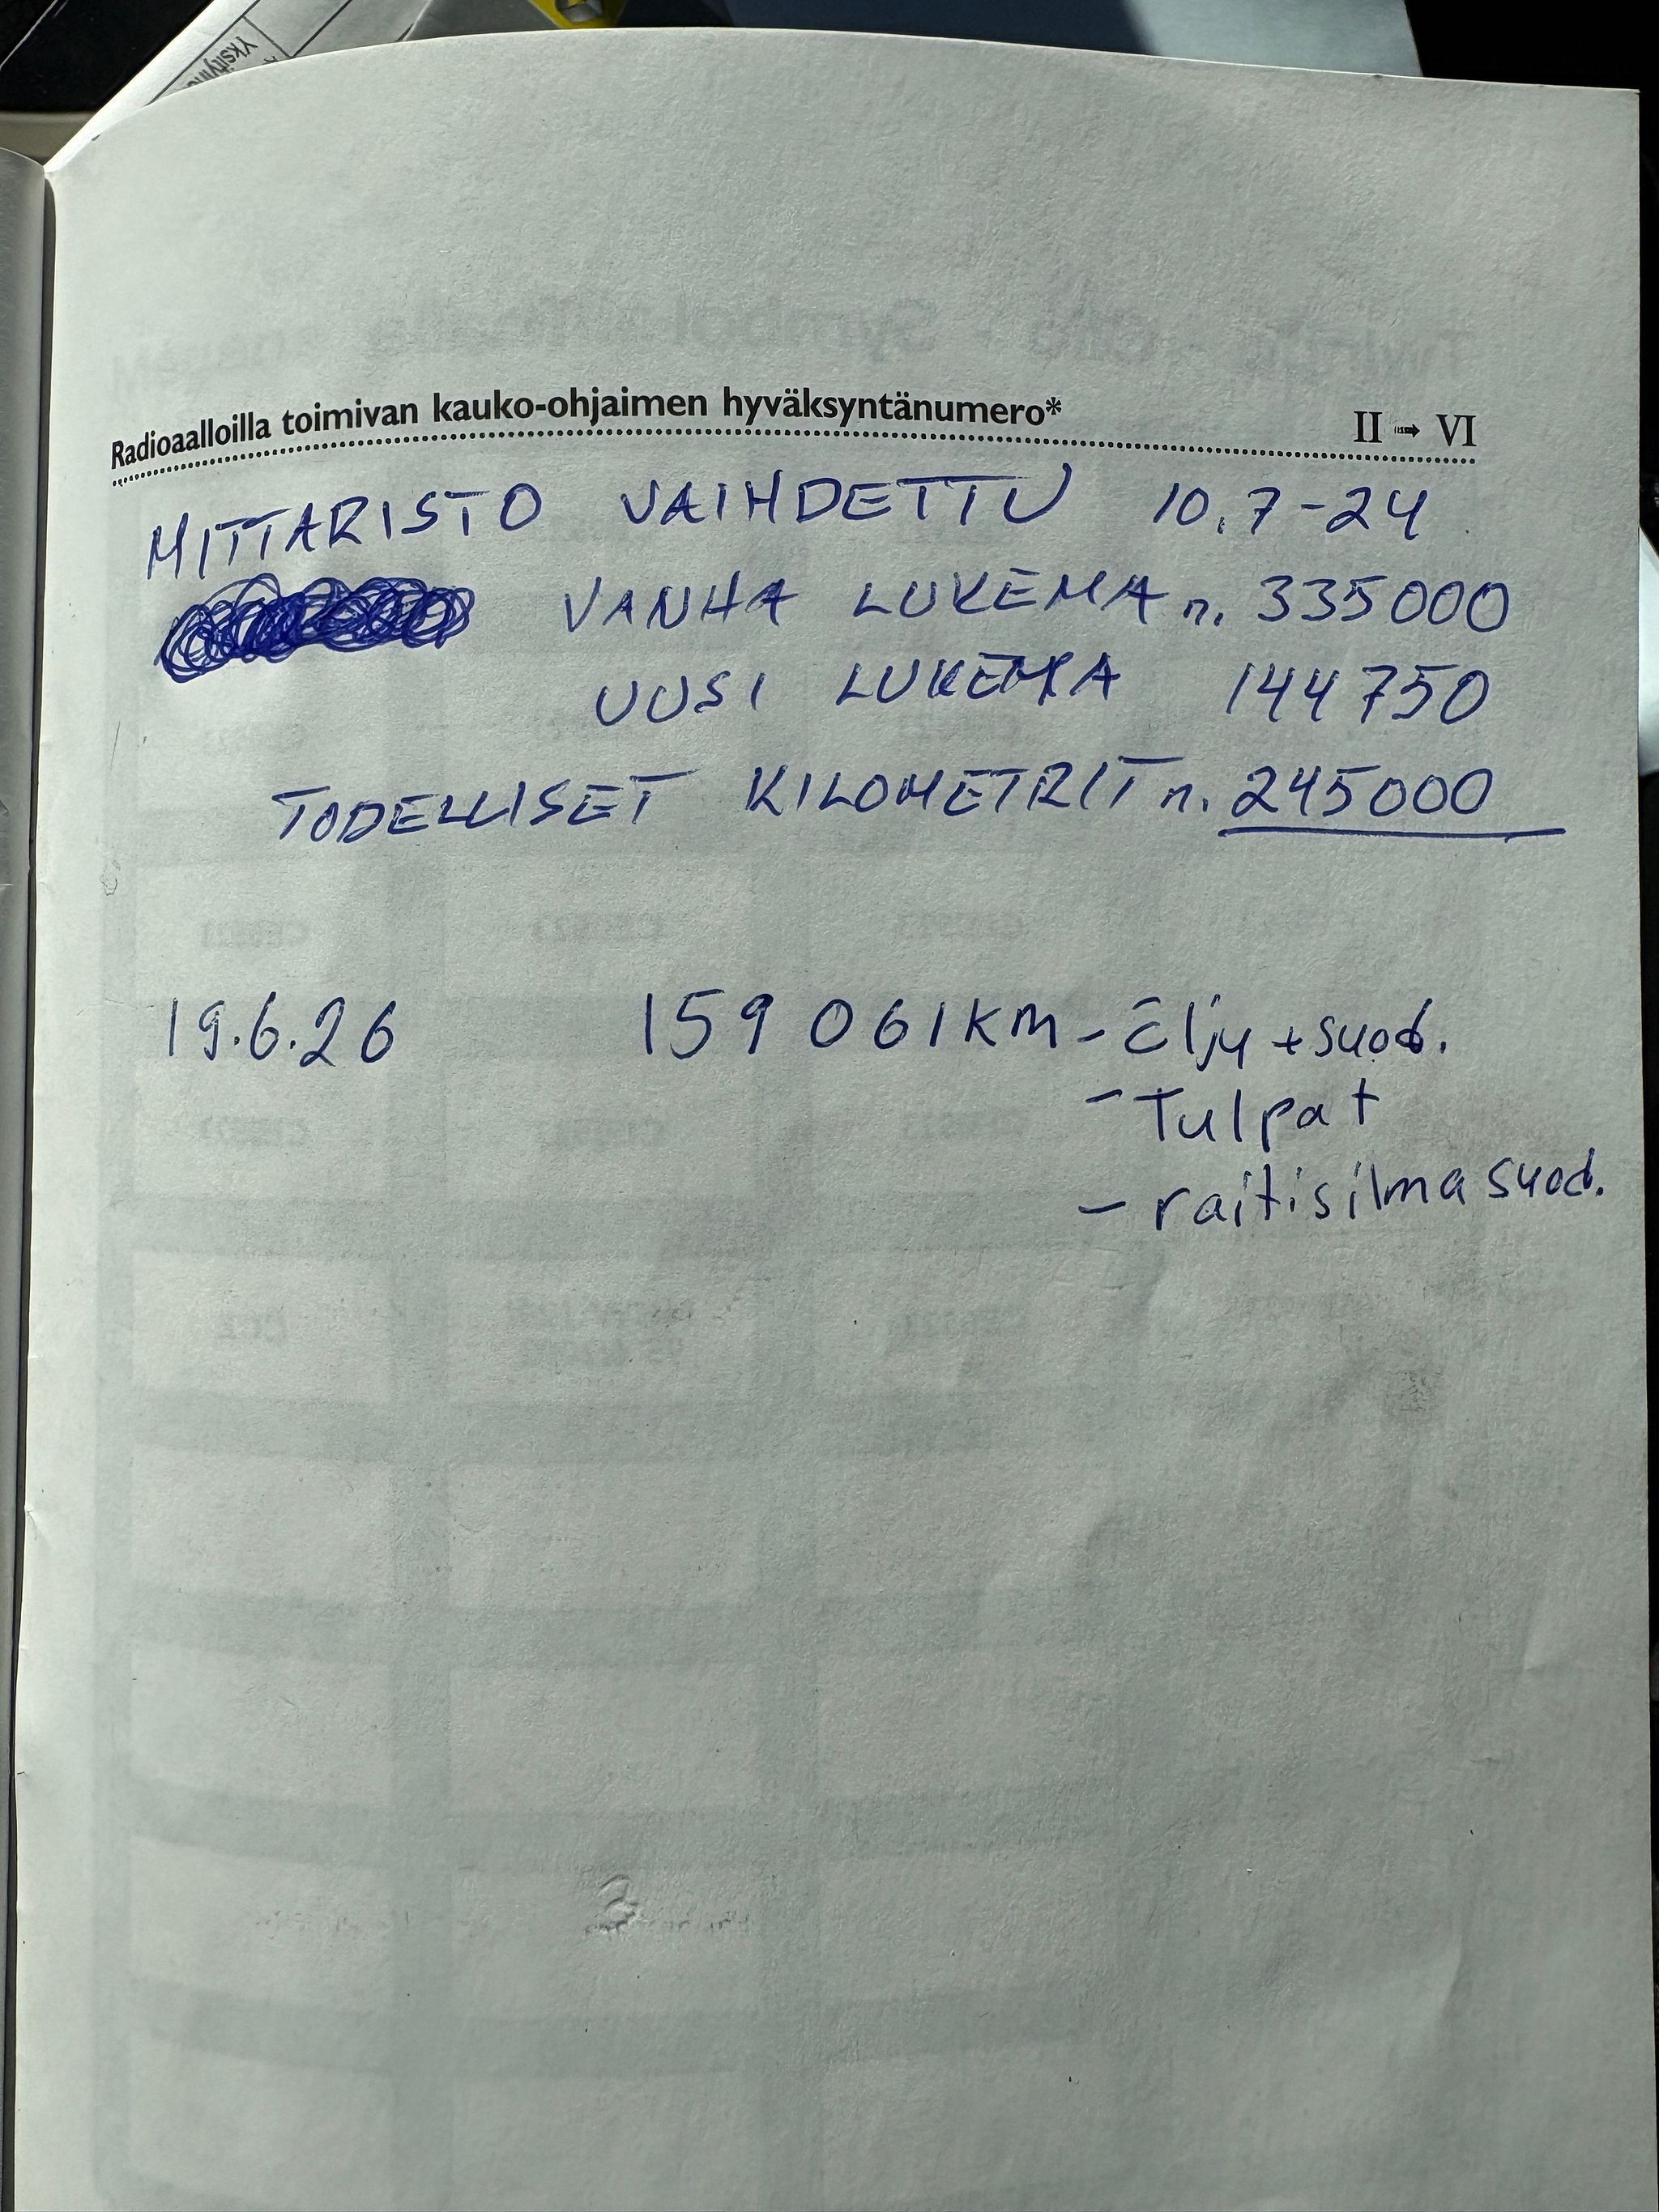 Yksityine
Radioaalloilla toimivan kauko-ohjaimen hyväksyntänumero* II → VI
MITTARISTO VAIHDETTU 10.7-24
VANHA LUKEMA n. 335000
UUSI LUKEMA 144750
TODELLISET KILOMETRIT n. 245000
19.6.26 159 061 km - Öljy + suod.
- Tulpat
- raitisilma suod.